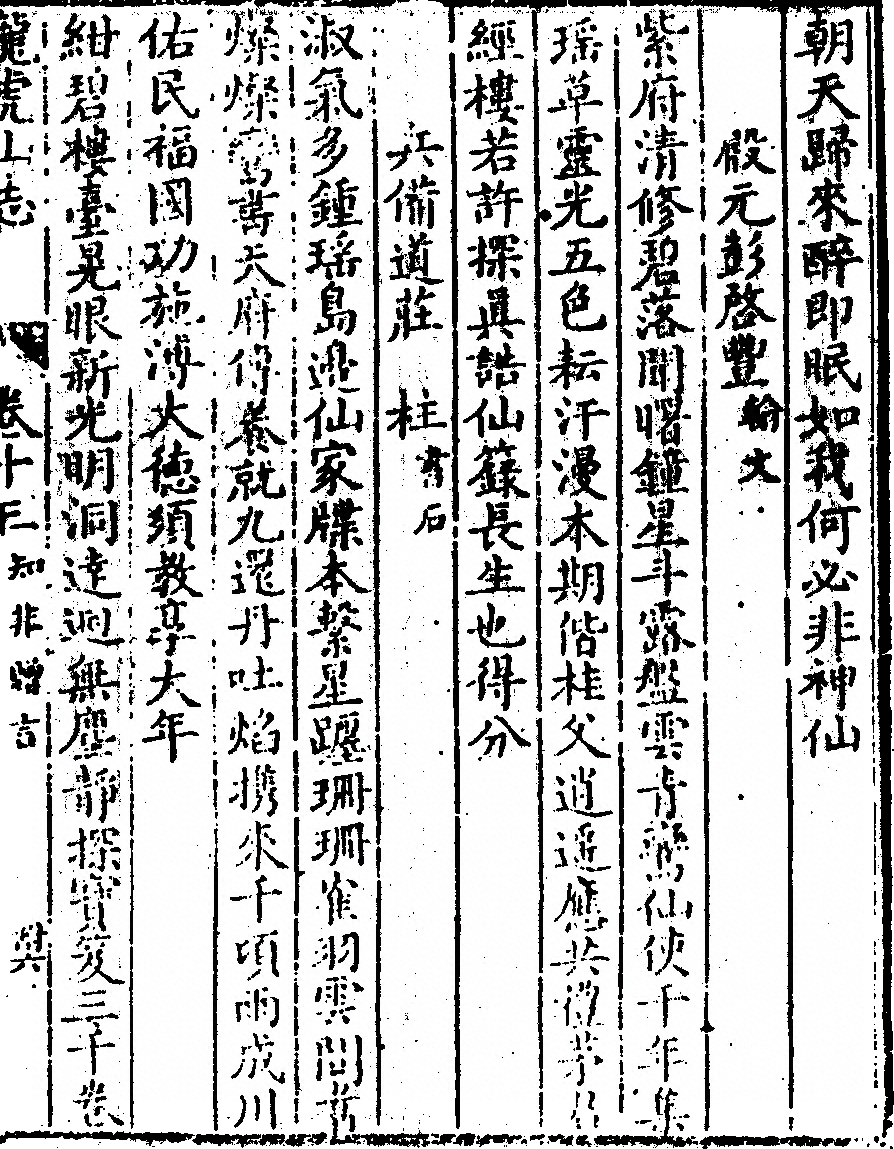 朝天歸來醉即眠如我何必非神仙
殿元彭啓豐翰文
紫府清修碧落聞曙鐘星斗露盤雲青鸞仙侠千年集
瑶草靈光五色耘汗漫本期偕桂父逍遥應共禮茅君
經樓若許探眞誥仙籙長生也得分
兵備道莊 柱書石
淑氣多鍾瑶島邊仙家牒本繫星躔珊珊雀羽雲間
燦燦鸞天府傳養就九還丹吐焰携來千頃雨成川
佑民福國功施溥大德須教享大年
紺碧樓臺晃眼新光明洞達迥無塵靜探寶笈三千卷
龍虎山志 卷十三 知非贈言